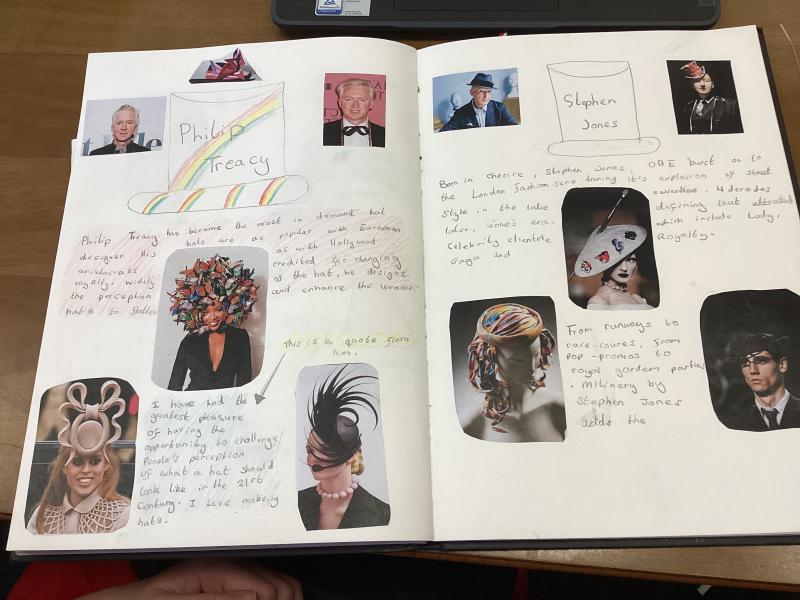 Philip
Treacy
Philip Treacy has become the most in demand hat
designer His hats are as popular with European
aristocrats as with Hollywood
royalty. widely credited for changing
the perception of the hat, he designs
hats to flatter and enhance the women.
This is a quote from
him.
I have had the
greatest pleasure
of having the
opportunity to challenge
People's perception
of what a hat should
look like in the 21st
Century. I love making
hats.
Stephen
Jones
Born in chesire, Stephen Jones, OBE burst on to
the London fashion scene during it's explosion of street
style in the late seventies. 4 decades
later, Jone's era defining that attracted
Celebrity clientele which include Lady
Gaga and Royalty.
From runways to
race-coures, from
Pop-promos to
royal garden parties
, Milinery by
Stephen Jones
adds the